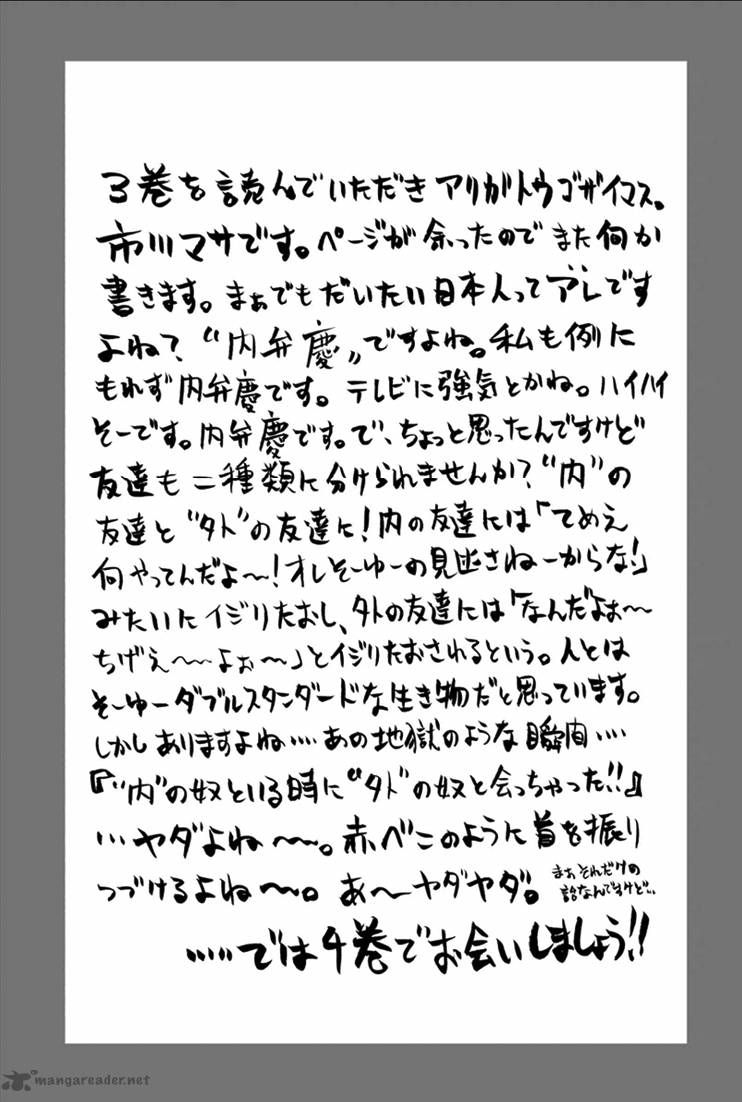 3巻を読んでいただきアリガトウゴザイマス。
市川マサです。ページが余ったのでまた何か
書きます。まぁでもだいたい日本人ってアレです
よね?“内弁慶„ですよね。私も例に
もれず内弁慶です。テレビに強気とかね。ハイハイ
そーです。内弁慶です。で、ちょっと思ったんですけど
友達も二種類に分けられませんか?“内”の
友達と“外”の友達に!内の友達には「てめえ
何やってんだよ〜!オレそーゆーの見逃さねーからな!」
みたいにイジりたおし、外の友達には「なんだよぉ〜
ちげぇ〜〜よぉ〜」とイジりたおされるという。人とは
そーゆーダブルスタンダードな生き物だと思っています。
しかしありますよね‥‥あの地獄のような瞬間‥‥
『“内”の奴といる時に“外”の奴と会っちゃった!!』
…ヤダよね〜〜。赤べこのように首を振り
つづけるよね〜〜。あ〜ヤダヤダ。
まぁそれだけの
話なんですけど…
……では4巻でお会いしましょう!!
mangareader.net